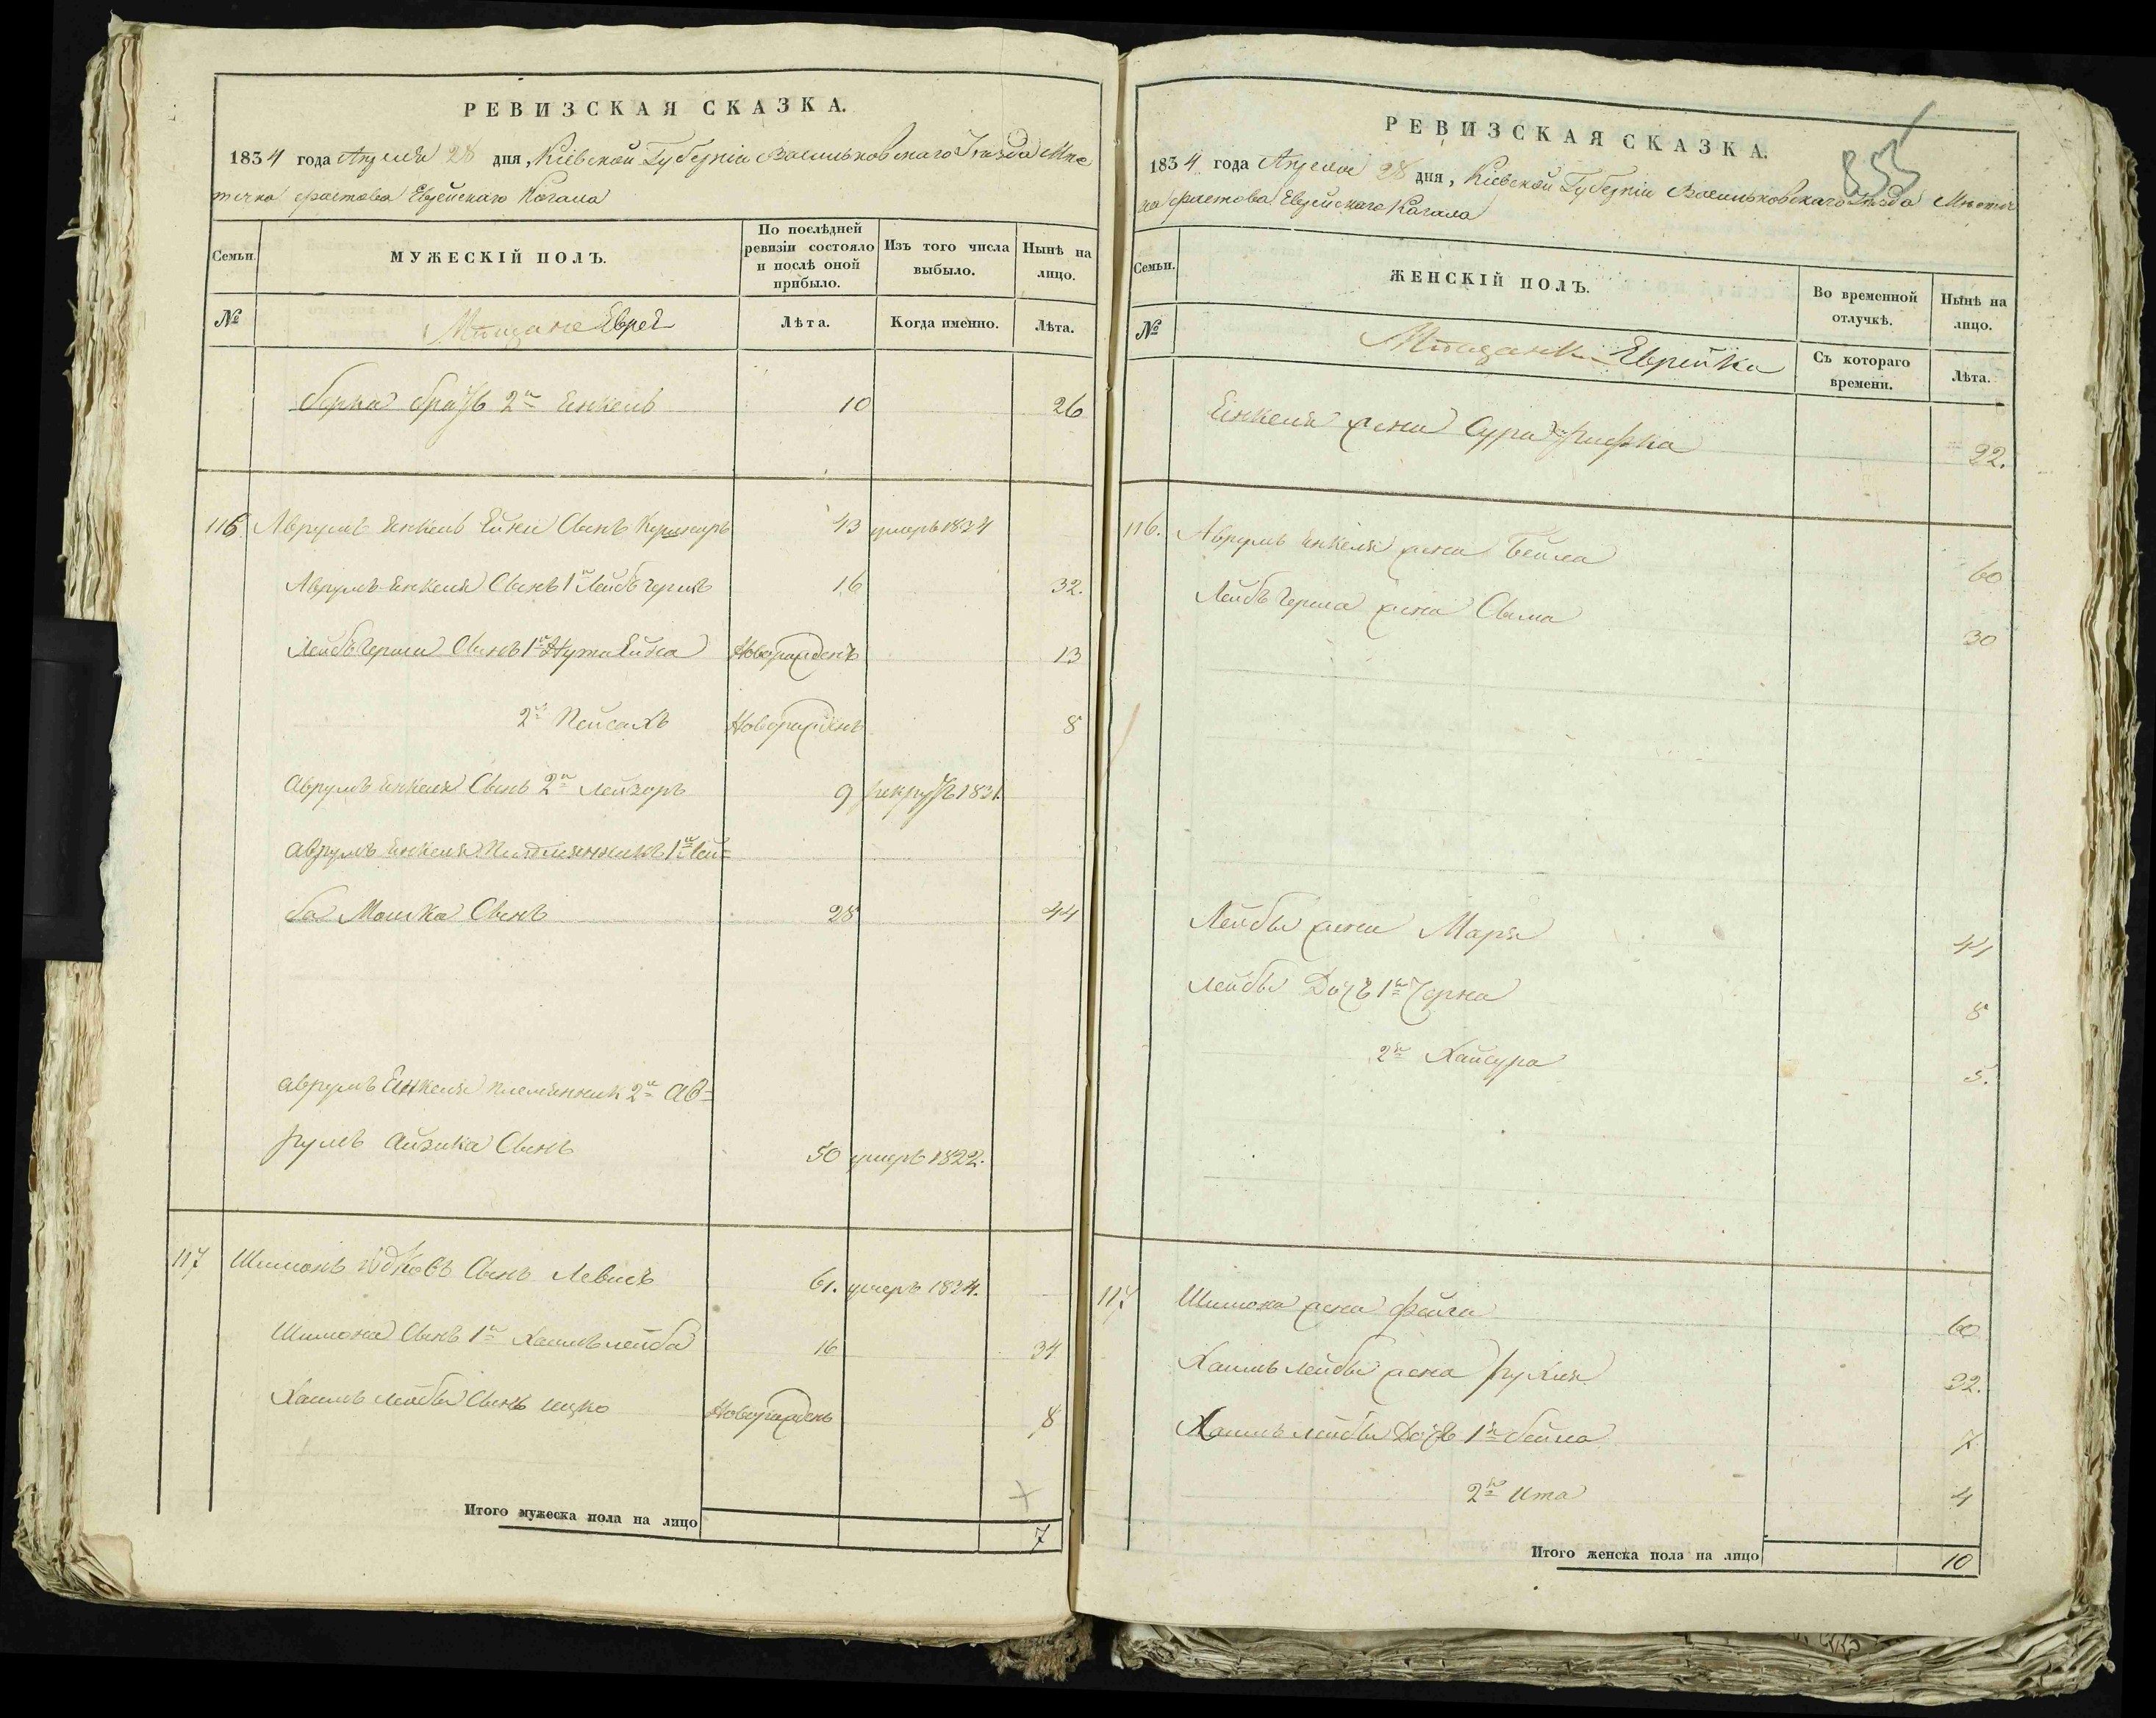 РЕВИЗСКАЯ СКАЗКА.
1834 года Апреля 28 дня, Кіевской Губерніи Васильковскаго Уезда Мѣс
течка Фастова Еврейскаго Кагала
Семьи.
МУЖЕСКІЙ ПОЛЪ.
По послѣдней
ревизіи состояло
и послѣ оной
прибыло.
Изъ того числа
выбыло.
Нынѣ на
лицо.
№
Мѣщане Евреи
Лѣта.
Когда именно.
Лѣта.
Берка братъ 2й Енкель 10 26
116 Аврумъ Енкель Ейни Сынъ 43 умеръ 1834
Аврумъ-Енкеля Сынъ 1й Лейбъ Гершъ 16 32.
Лейбъ Герша Сынъ 1й Нута Ейна Новорожденъ 13
2й Пейсахъ Новорожденъ 8
Аврумъ Енкеля Сынъ 2й Лейзоръ 9 рекрутъ 1831.
Аврумъ Енкеля Племянникъ 1й Лей=
ба Мошка Сынъ 28 44
Аврумъ Енкеля племянник 2й Ав=
румъ Айзика Сынъ 50 умеръ 1822.
117 Шимонъ Юдковъ Сынъ Левитъ 61. умеръ 1834.
Шимона Сынъ 1й Хаимъ Лейба 16 34
Хаимъ Лейбы Сынъ Ицко Новорожденъ 8
Итого мужеска пола на лицо 7
855
РЕВИЗСКАЯ СКАЗКА.
1834 года Апреля 28 дня, Кіевской Губерніи Васильковскаго Уезда Мѣстеч
ка Фастова Еврейскаго Кагала
Семьи.
ЖЕНСКІЙ ПОЛЪ.
Во временной
отлучкѣ.
Нынѣ на
лицо.
№
Мѣщанки Еврейки
Съ котораго
времени.
Лѣта.
Енкеля жена Сура Рифка 22.
116. Аврумъ Енкеля жена Бейла 60
Лейбъ Герша жена Сыма 30
Лейбы жена Маря 41
Лейбы Дочь 1я Черна 8
2я Хайсура 5.
117 Шимона жена Фейга 60
Хаимъ Лейбы жена Рухля 32.
Хаимъ Лейбы Дочь 1я Бейла 7
2я Ита 4
Итого женска пола на лицо 10